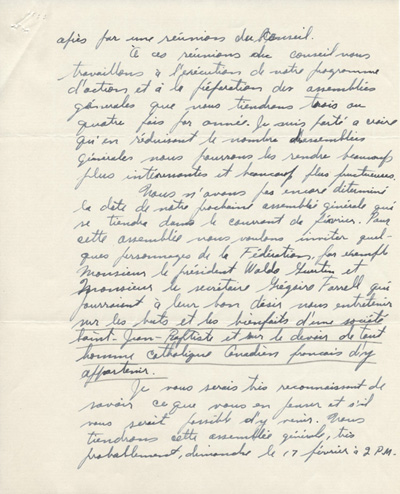 après par une réunion du Conseil.
A ces réunions du conseil nous
travaillons à l'exécution de notre programme
d'action et à la préparation des assemblées
générales que nous tiendrons trois ou
quatre fois par année. Je suis porté a croire
qu'en réduisant le nombre d'assemblées
générales nous pourrons les rendre beaucoup
plus intéressantes et beaucoup plus fructueuses.
Nous n'avons pas encore déterminé
la date de notre prochaine assemblé générale qui
se tiendra dans le courant de février. Pour
cette assemblée nous voulons inviter quel-
ques personnages de la Fédération, par exemple
Monsieur le président Waldo Guertin et
Monsieur le secrétaire Grégoire Farrell qui
pourraient à leur bon désir nous entretenir
sur les buts et les bienfaits d'une société
Saint-Jean-Baptiste et sur le devoir de tout
homme catholique Canadien français d'y
appartenir.
Je vous serais très reconnaissant de
savoir ce que vous en penser et s'il
vous serait possible d'y venir. Nous
tiendrons cette assemblée générale, très
probablement, dimanche le 17 février à 2 P.M.